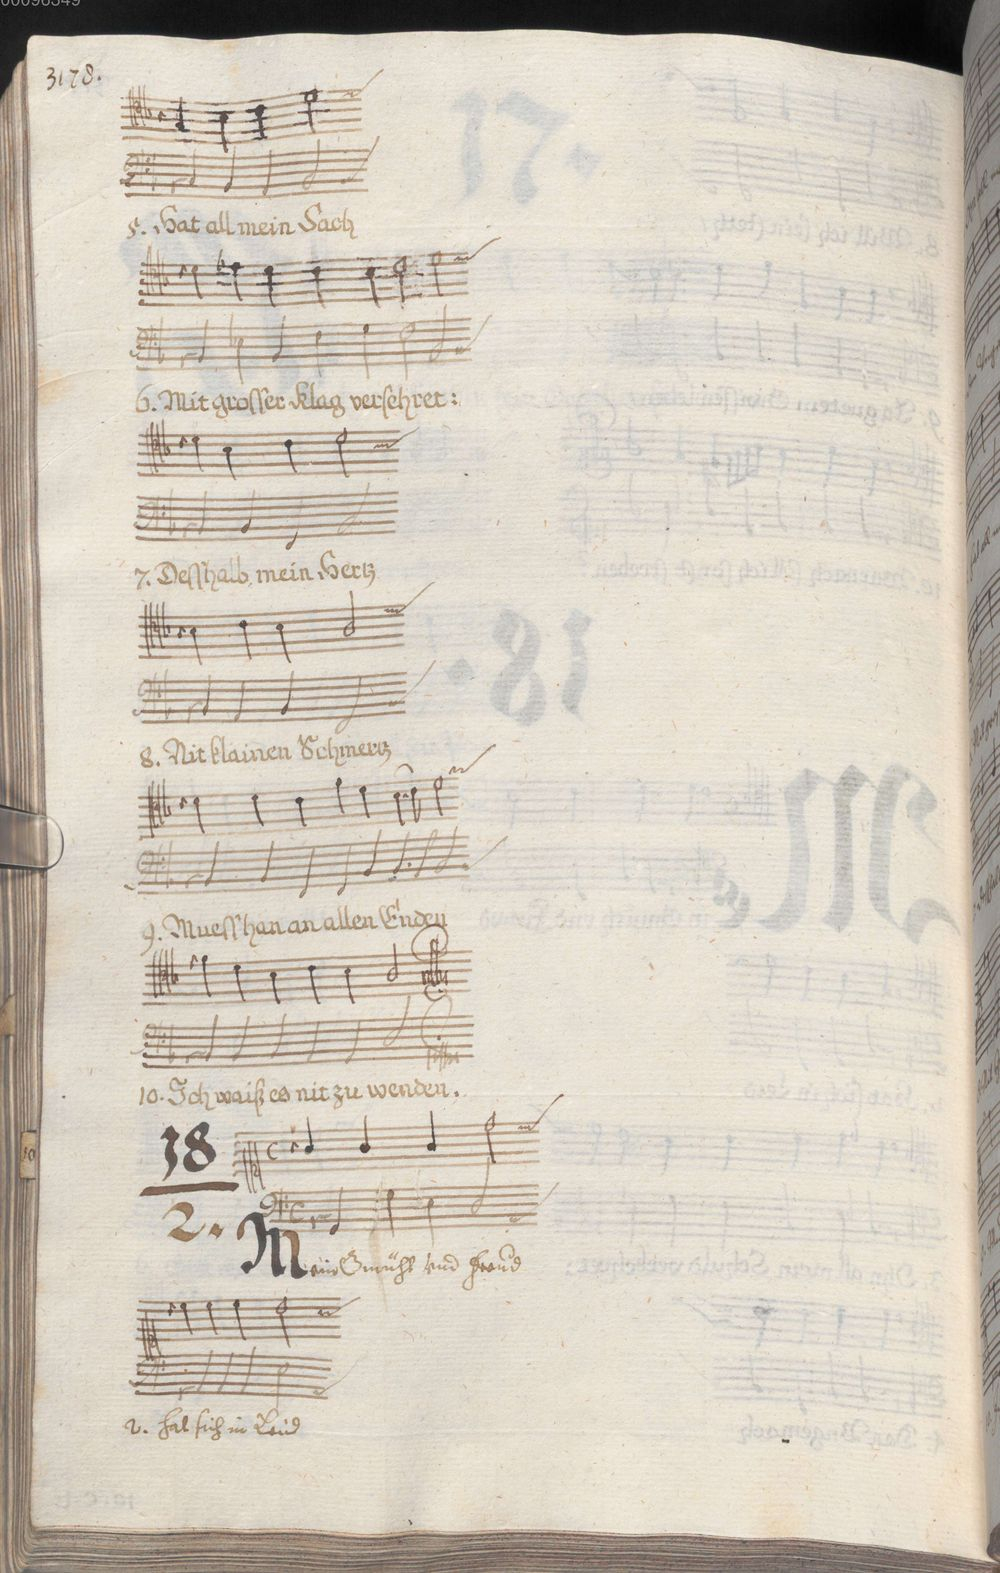 3178.
5. Hat all mein Sach
6. Mit grosser klag versehret:
7. Desshalb mein Hertz
8. Nit klainen Schmertz
9. Muess han an allen Enden
10. Ich waiß es nit zu wenden.
18
2. Mein Gmüht vnd Freud
2. hat sich in Leid